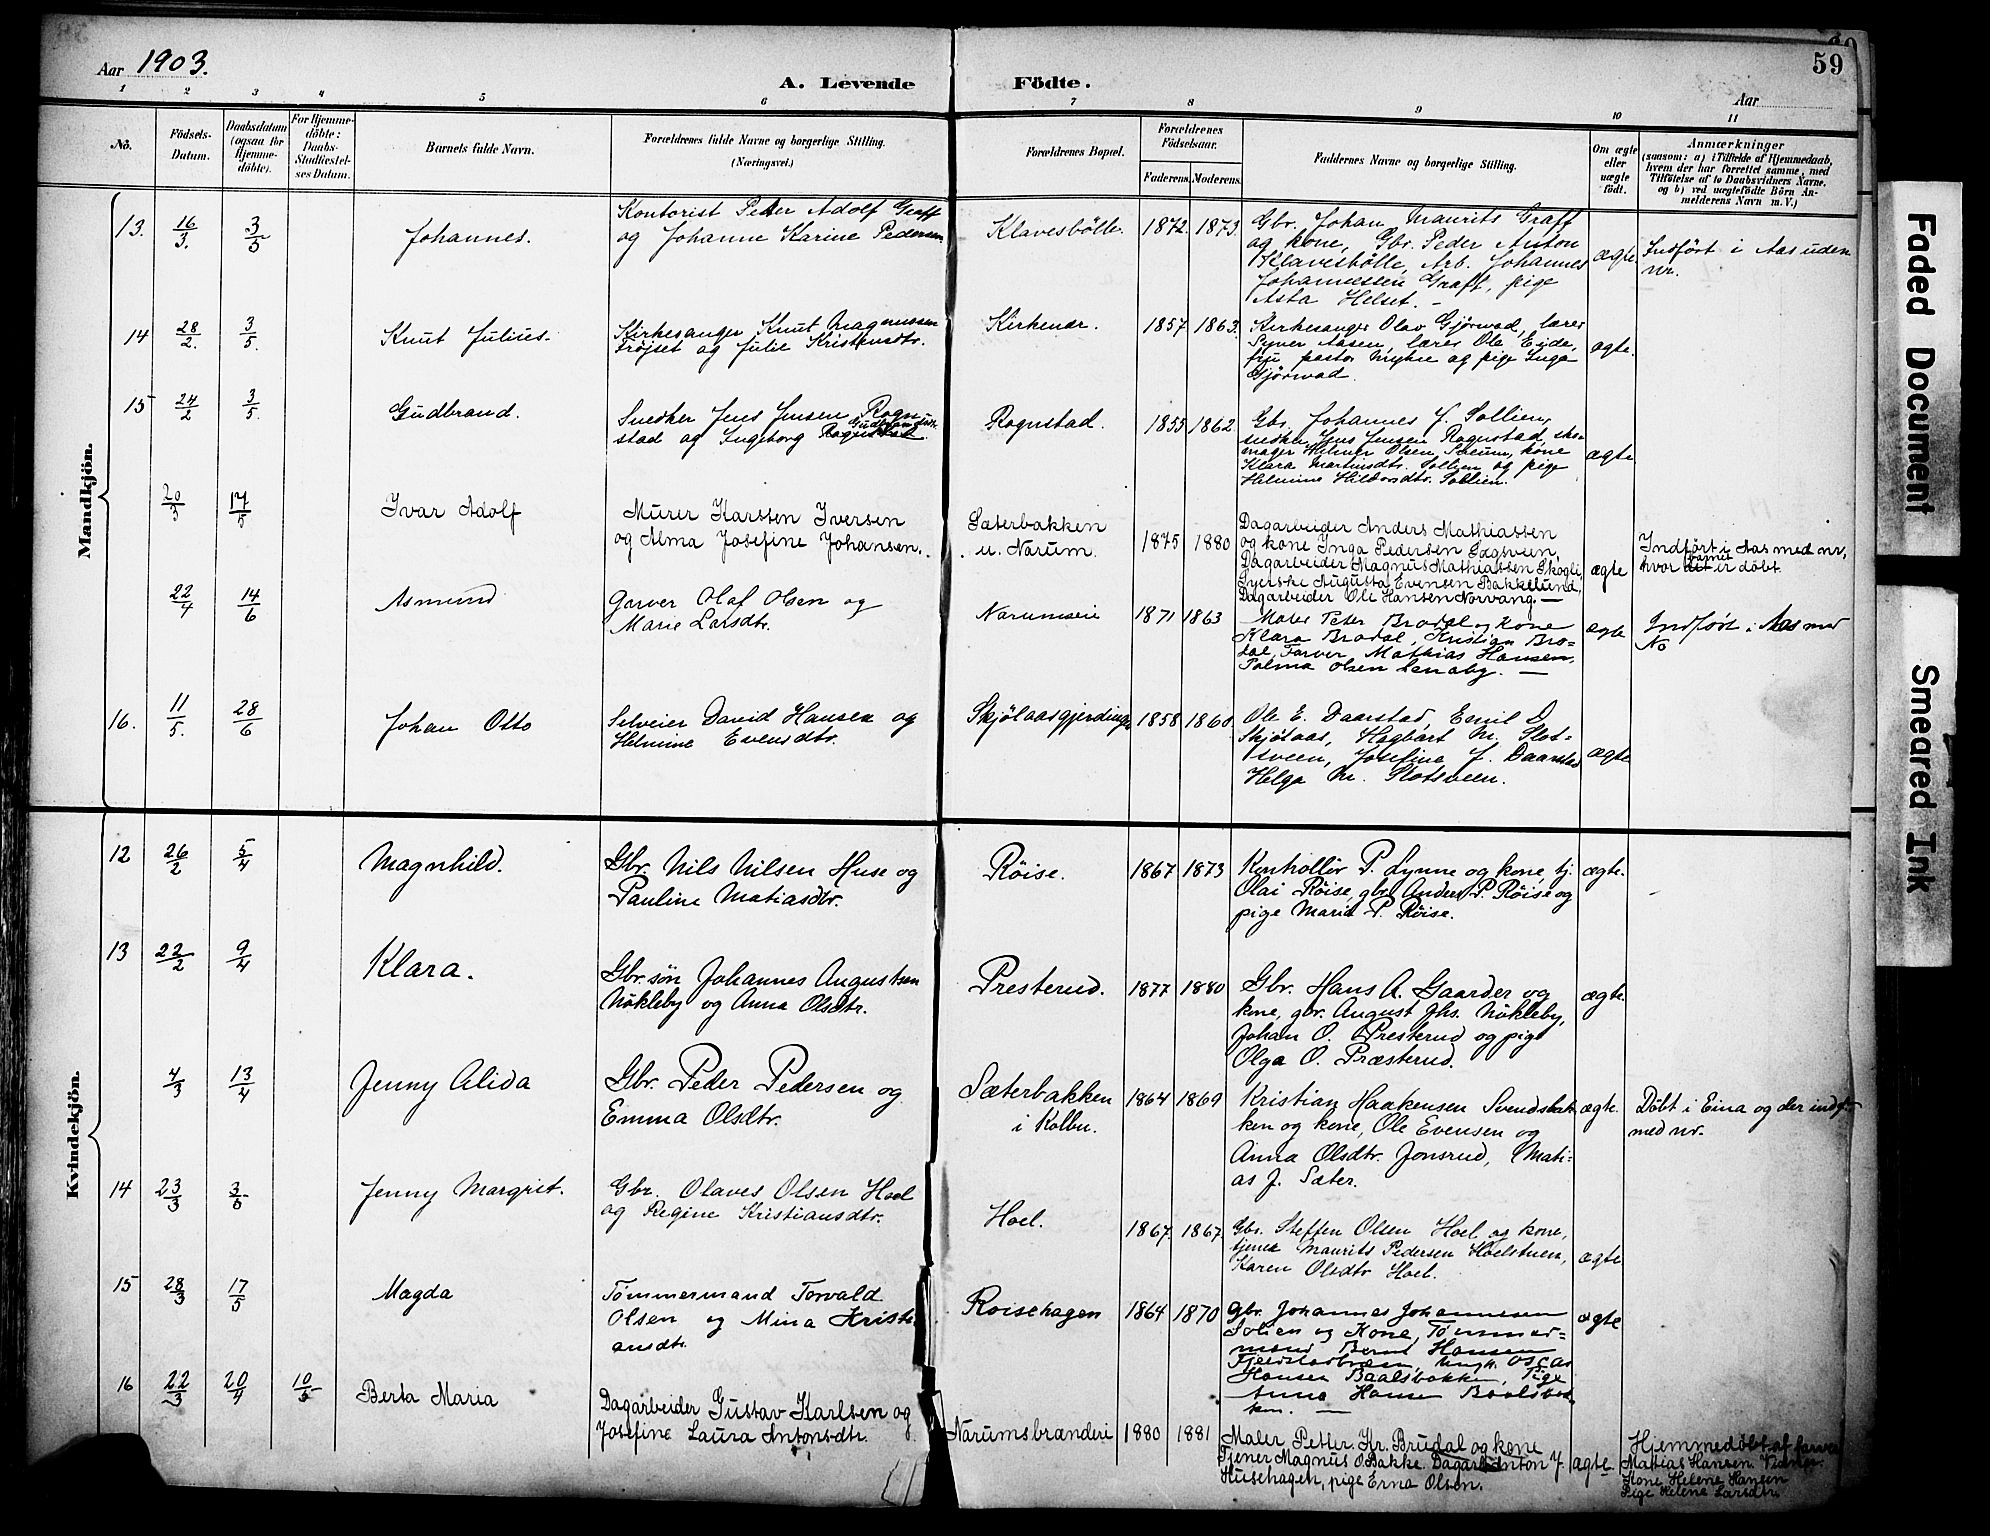 Aar 1903.
A. Levende Födte.
59
Aar
1 2 3 4 5 6 7 8 9 10 11
No.
Födsels-
Datum.
Daabsdatum
(ogsaa for
Hjemme-
döbte).
For Hjemme-
döbte:
Daabs-
Stadfæstel-
ses Datum.
Barnets fulde Navn.
Forældrenes fulde Navne og borgerlige Stilling.
(Næringsvei.)
Forældrenes Bopæl.
Forældrenes
Födselsaar.
Faderens. Moderens.
Faddernes Navne og borgerlige Stilling.
Om ægte
eller
uægte
födt.
Anmærkninger
(saasom: a) i Tilfælde af Hjemmedaab,
hvem der har forrettet samme, med
Tilföielse af to Daabsvidners Navne,
og b) ved uægtefödte Börn An-
melderens Navn m. V.)
Mandkjön.
13. 16/3. 3/5 Johannes.
Kontorist Peder Adolf Graff
og Johanne Karine Pedersen
Klavesbölle. 1872. 1873.
Gbr. Johan Maurits Graff
og kone, Gbr. Peder Anton
Klavesbölle, Arb. Johannes
Johannessen Graff, pige
Asta Helset. –
ægte.
Indfört i Aas uden
nr.
14 28/2. 3/5. Knut Julius.
Kirkesanger Knut Magnussen
Tröjset og Julie Kristensdtr.
Kirkenær. 1857. 1863.
Kirkesanger Olav Gjörwad, lærer
Syver Aasen, lærer Ole Eide,
frue pastor Mykre og pige Inga
Gjörwad.
ægte.
15 24/2 3/5. Gudbrand.
Snedker Jens Jensen Rogn
stad og Ingeborg Gudbrandsen
Rognstad. 1855 1862.
Gbr. Johannes J. Sollien,
snedker Jens Jensen Rognstad, sko-
mager Helmer Olsen Sveum, kone
Klara Martinsdtr. Sollien og pige
Helmine Hildorsdtr. Sollien.
ægte
20/3 17/5 Ivar Adolf
Murer Karsten Iversen
og Alma Josefine Johansen.
Sæterbakken
u. Narum. 1875 1880
Dagarbeider Anders Mathiassen
og kone Inga Pedersen Engsveen,
Dagarbeider Magnus Mathiassen Skogli,
Syerske Augusta Evensen Bakkelund,
Dagarbeider Ole Hansen Norvang. —
ægte
Indfört i Aas med nr,
hvor barnet er döbt
22/4 14/6 Asmund
Garver Olaf Olsen og
Marie Larsdtr.
Narumseie 1871 1863
Maler Peter Brodal og kone
Klara Brodal, Kristian Bro-
dal, Farver Mathias Hansen,
Palma Olsen Lenaby. —
ægte
Indfört i Aas med
No
16. 11/5. 28/6 Johan Otto
Selveier David Hansen og
Helmine Evensdtr.
Skjölaasgjerdinge 1858 1860.
Ole E. Daarstad, Emil D.
Skjölaas, Hagbart M. Slot-
sveen, Josefine J. Daarstad
Helga M. Slotsveen.
ægte
Kvindekjön.
12 26/2 5/4 Magnhild.
Gbr. Nils Nilsen Huse og
Pauline Matiasdtr.
Röise. 1867 1873
Kontrollör P. Lynne og kone, tj.
Olai Röise, gbr. Anders P. Röise og
pige Maria P. Röise.
ægte.
13 22/2 9/4 Klara.
Gbr. sön Johannes Augustsen
Nökleby og Anna Olsdtr.
Presterud. 1877 1880
Gbr. Hans A. Gaarder og
kone, gbr. August Jhs. Nökleby,
Johan O. Presterud og pige
Olga O. Præsterud.
ægte.
4/3 13/4 Jenny Alida
Gbr. Peder Pedersen og
Emma Olsdtr.
Sæterbakken
i Kolbu. 1864 1869
Kristian Haakensen Svendsbak-
ken og kone, Ole Evensen og
Anna Olsdtr. Jonsrud, Mati-
as J. Sæter.
ægte.
Döbt i Eina og der indf.
med nr.
14 23/3 3/5 Jenny Margrit.
Gbr. Olaves Olsen Hoel
og Regine Kristiansdtr.
Hoel. 1867. 1867.
Gbr. Steffen Olsen Hoel og kone,
tjener Maurits Pedersen Hoelstuen,
Karen Olsdtr Hoel.
ægte
15 28/3 17/5 Magda
Tømmermand Torvald
Olsen og Mina Kristi
ansdtr.
Roisehagen 1864 1870
Gbr. Johannes Johannesen
Solien og Kone, Tömmer-
mand Bernt Hansen
Fjeldstadbræn, Ungk. Oscar
Hansen Baalsbakken, Pige
Anna Hansen Baalsbak
ken. —
ægte
16 22/3 20/4 10/5 Berta Maria
Dagarbeider Gustav Karlsen og
Josefine Laura Antonsdtr.
Narumsbrænderi 1880 1881
Maler Petter Kr. Brudal og kone
Tjener Magnus O. Bakke. Dagarb. Anton J.
Husehagen, pige Erna Olsen.
ægte
Hjemmedöbt af farver
Matias Hansen. Vidner:
Kone Helene Hansen
Pige Helene Larsdtr.
Faded Document
Smeared Ink